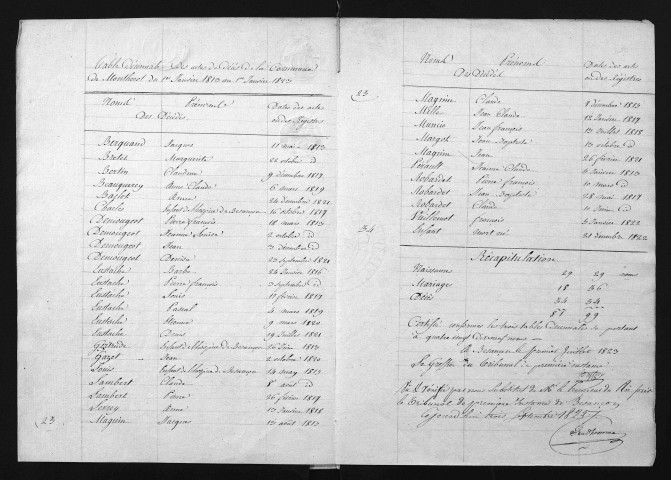 Table Décennale des actes de décès de la Commune
de Montherot du 1er Janvier 1813 au 1er Janvier 1823
Noms Prénoms Dates des actes
Des Décédés ou des Registres
Berguand Jacques 11 mai 1813
Bretet Marguerite 20 octobre id
Bertin Claudine 9 décembre 1819
Beauquerey Anne Claude 6 mars 1819
Baflot Anne 24 décembre 1821
Charles Enfant de l'hospice de Besançon 16 octobre 1817
Demougeot Pierre françois 18 mars 1813
Demougeot Jeanne Louise 2 octobre id
Demougeot Jean 3 décembre id
Demougeot Denise 23 septembre 1821
Eustache Barbe 24 Janvier 1816
Eustache Pierre françois 2 septembre id
Eustache Louis 17 février 1819
Eustache Pascal 4 mars 1819
Eustache Etienne 9 mars 1820
Eustache Denis 19 Juillet 1821
Gertrude Enfant de l'hospice de Besançon 1813
Gazet Jean 2 octobre 1820
Louis Enfant de l'hospice de Besançon 14 may 1813
Lambert Claude 8 avril id
Lambert Pierre 26 février 1819
Anne 13 Janvier 1818
23 Magnin Jacques 13 août 1813
Noms Prénoms Dates des actes
Des Décédés ou des Registres
23
Magnin Claude 8 décembre 1813
Mille Jean Claude 12 Janvier 1819
Jean françois 12 Juillet 1818
Margot Jean Baptiste 13 octobre id
Magnin Jean 26 février 1821
Jeanne Claude 4 Janvier 1813
Robardet Pierre françois 10 mars id
Robardet Jean Baptiste 28 mai 1819
Robardet Claude 10 Juin id
Vuillemot françois 5 Janvier 1822
34 Enfant mort né 21 décembre 1822
Récapitulation
Naissance 29 29
Mariages 18 36
Décès 34 34
87 99
Certifié conformes les trois tables décennales ne portant
à quatre vingt dix neuf noms
A Besançon le premier Juillet 1823
Le Greffier du Tribunal de première instance
Vérifié par nous substitut de Mr le procureur du Roi près
le Tribunal de première instance de Besançon
Septembre 1825